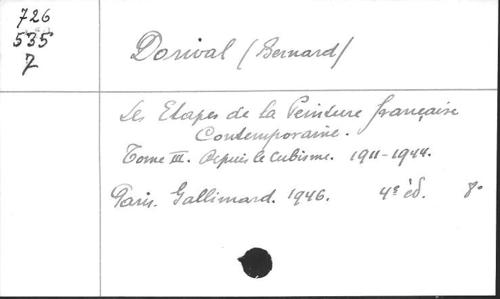 726
535
7
Dorival (Bernard)
Les Etapes de la Peinture française
Contemporaine.
Tome III. Depuis le Cubisme. 1911-1944.
Paris. Gallimard. 1946. 4e éd. 8°